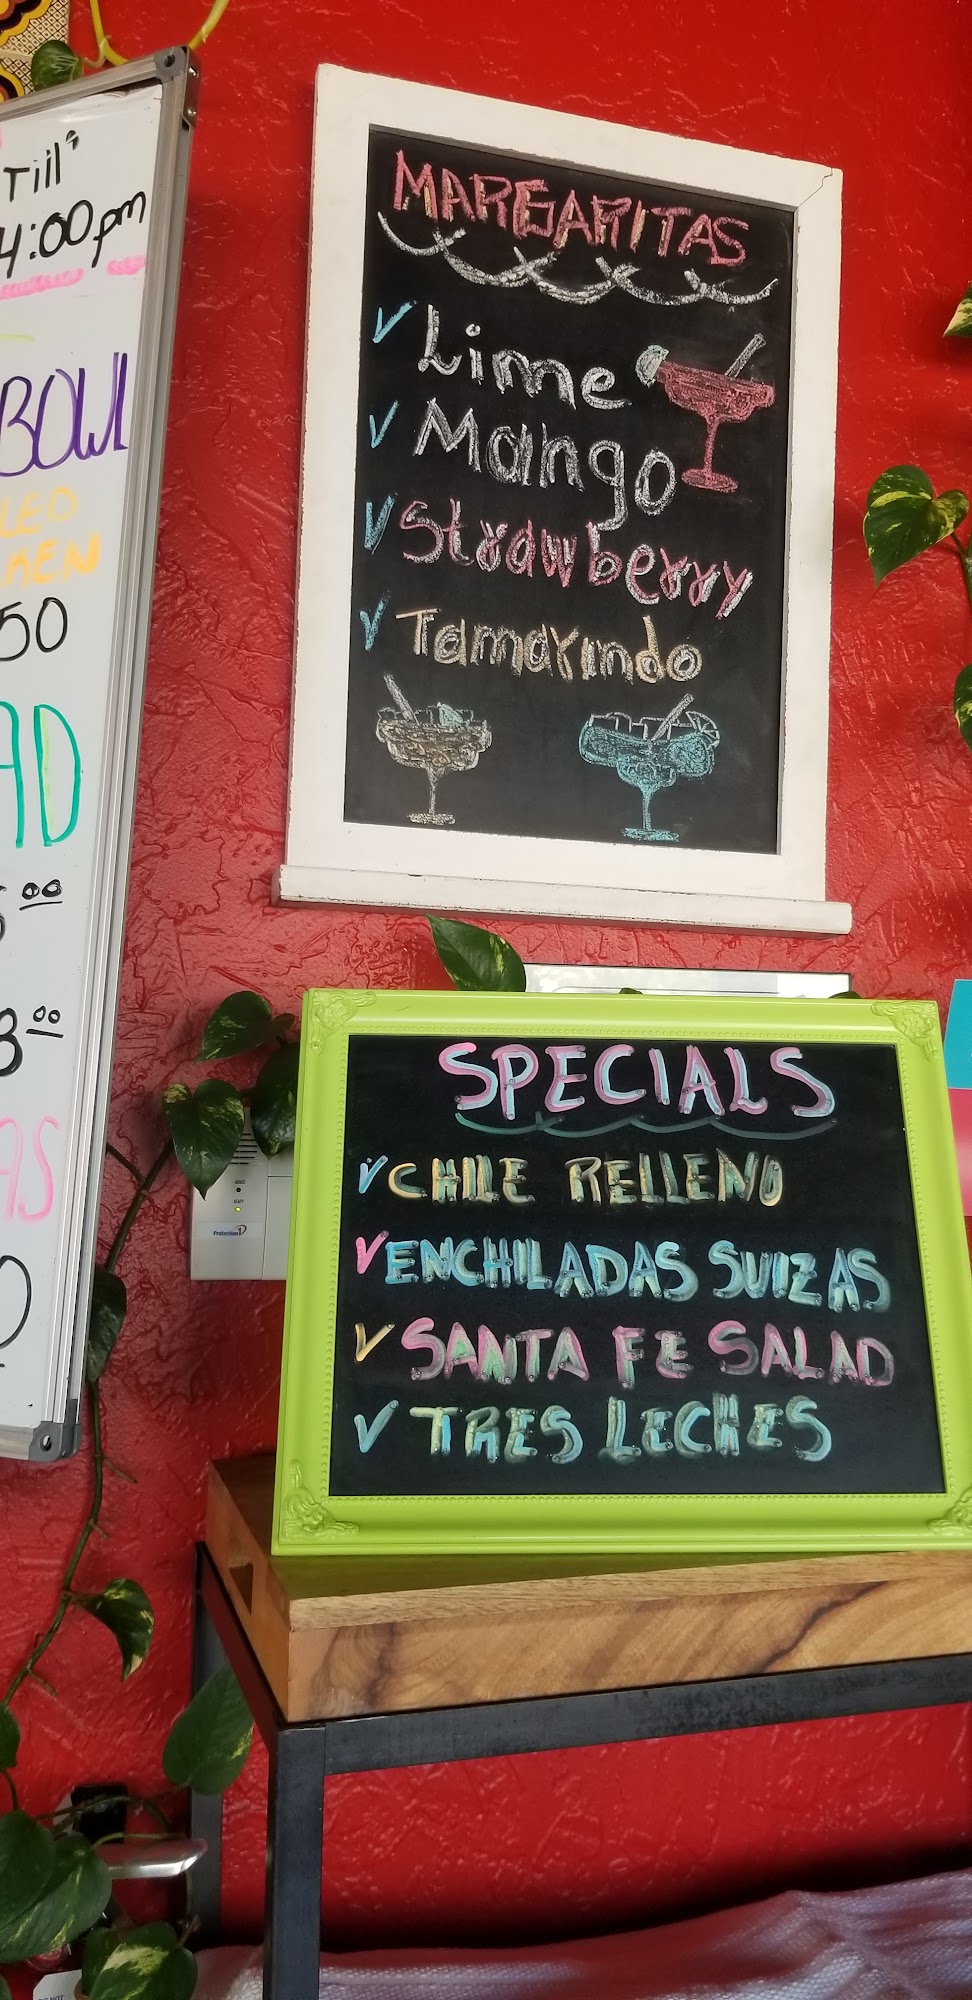 Till
4:00pm
BOWL
50
00
8 00
MARGARITAS
Lime
Mango
Strawberry
Tamarindo
SPECIALS
CHILE RELLENO
ENCHILADAS SUIZAS
SANTA FE SALAD
TRES LECHES
Protection1